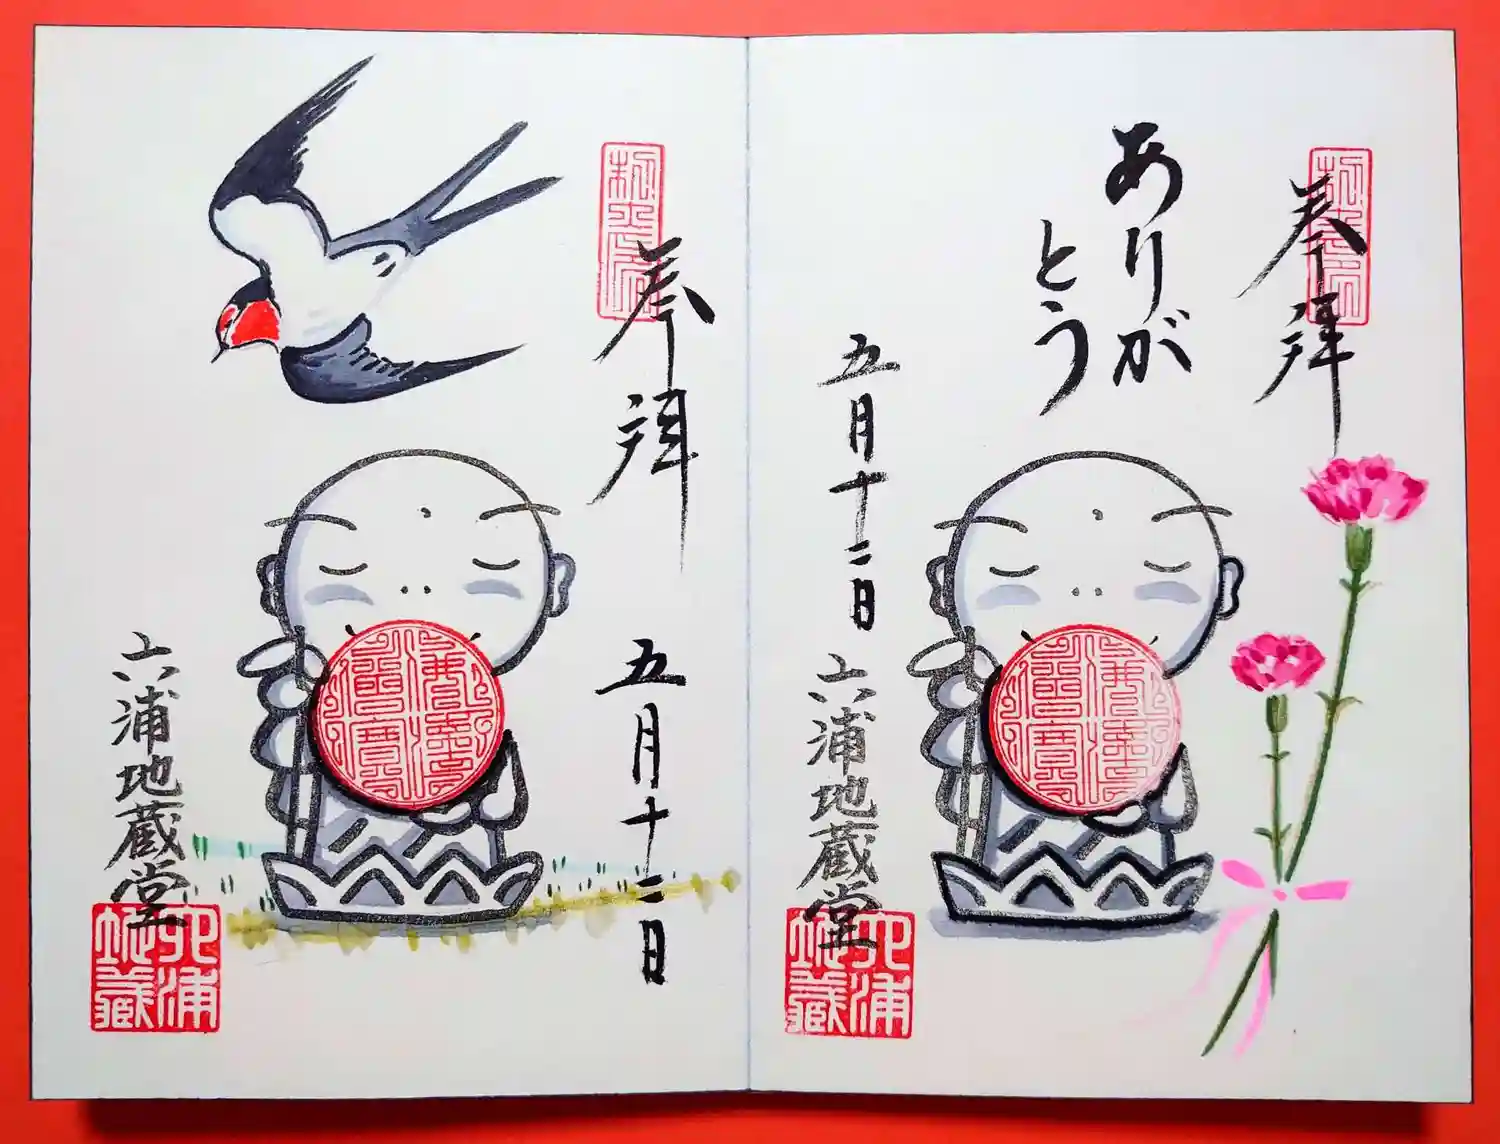 奉拝
ありが
とう
五月十二日
六浦地蔵堂
六浦
地蔵
奉拝
五月十二日
六浦地蔵堂
六浦
地蔵